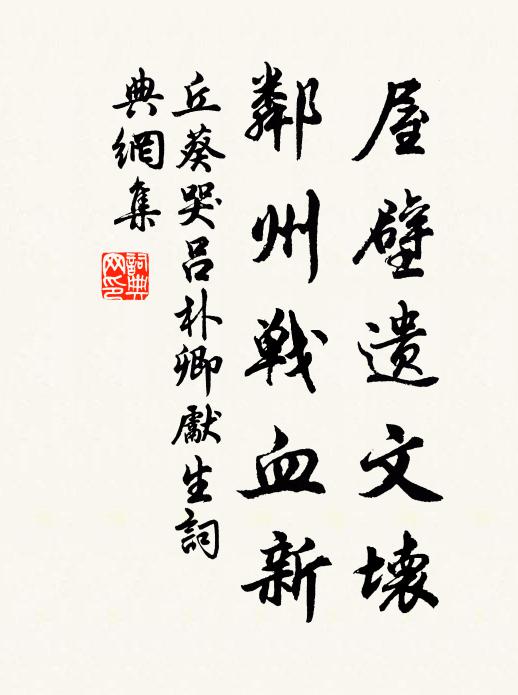 屋壁遺文壞
鄰州戰血新
丘葵哭呂朴卿獻生詞
典網集
詞典网印